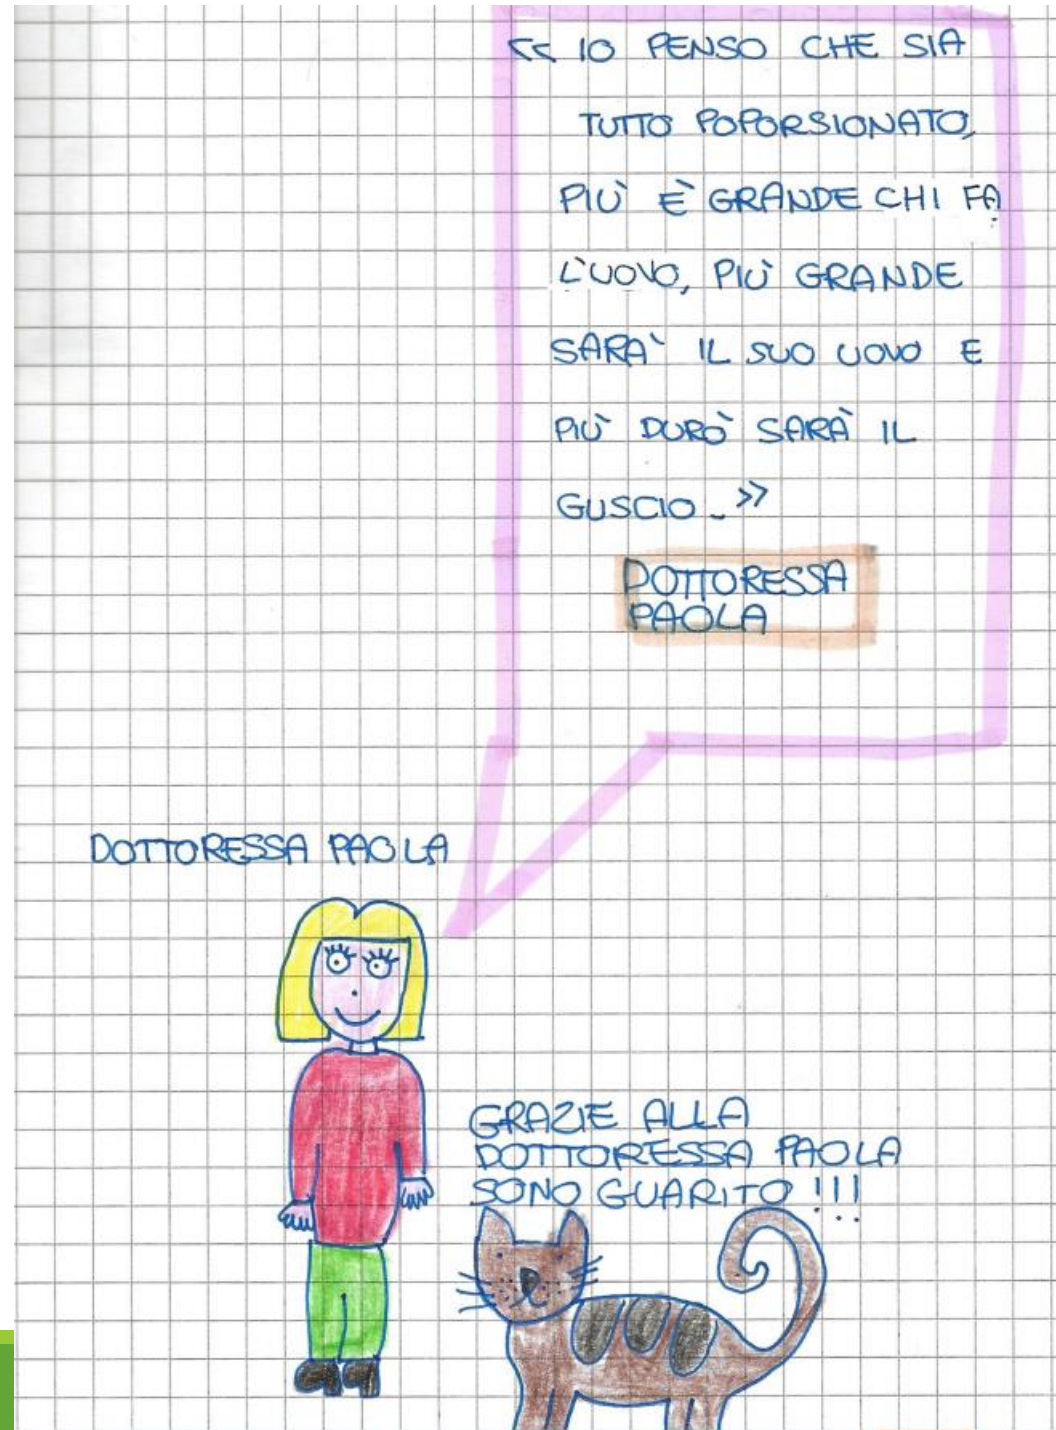 << IO PENSO CHE SIA
TUTTO POPORSIONATO,
PIÙ È GRANDE CHI FA
L'UOVO, PIÙ GRANDE
SARA' IL SUO UOVO E
PIÙ DURÒ SARÀ IL
GUSCIO. >>
DOTTORESSA
PAOLA
DOTTORESSA PAOLA
GRAZIE ALLA
DOTTORESSA PAOLA
SONO GUARITO !!!